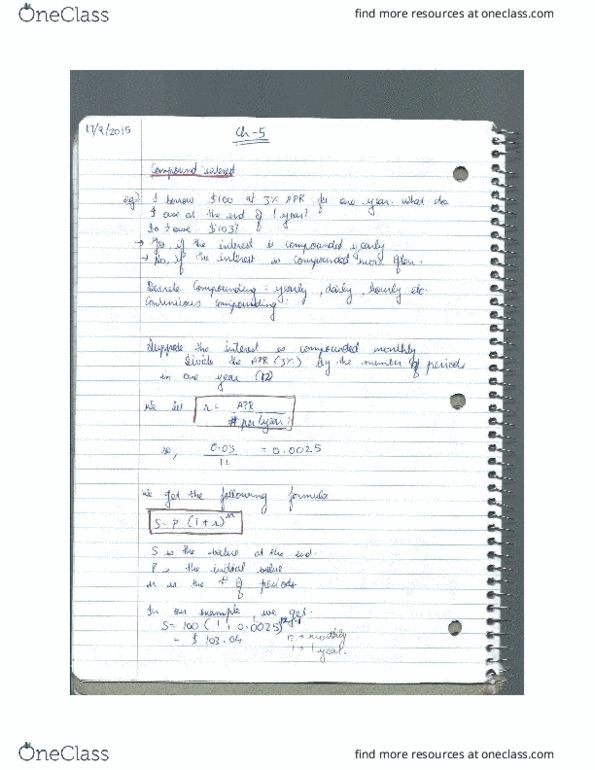 OneClass
find more resources at oneclass.com
17/9/2015
Ch-5
Compound interest
eg:- I borrow $100 at 3% APR for one year. What do
I owe at the end of 1 year?
Do I owe $103?
→ Yes, if the interest is compounded yearly
→ No, if the interest is compounded more often.
Discrete Compounding: yearly, daily, hourly etc.
Continuous compounding:
Suppose the interest is compounded monthly
Divide the APR (3%) by the number of periods
in one year (12)
We let r = APR
# per/year
so, 0.03 = 0.0025
12
We get the following formula
S = P (1 + r)ⁿ
S is the value at the end.
P is the initial value
n is the # of periods
In our example, we get.
S = 100 (1 + 0.0025)
= $ 103.04
12 → monthly
1 → 1 year.
OneClass
find more resources at oneclass.com